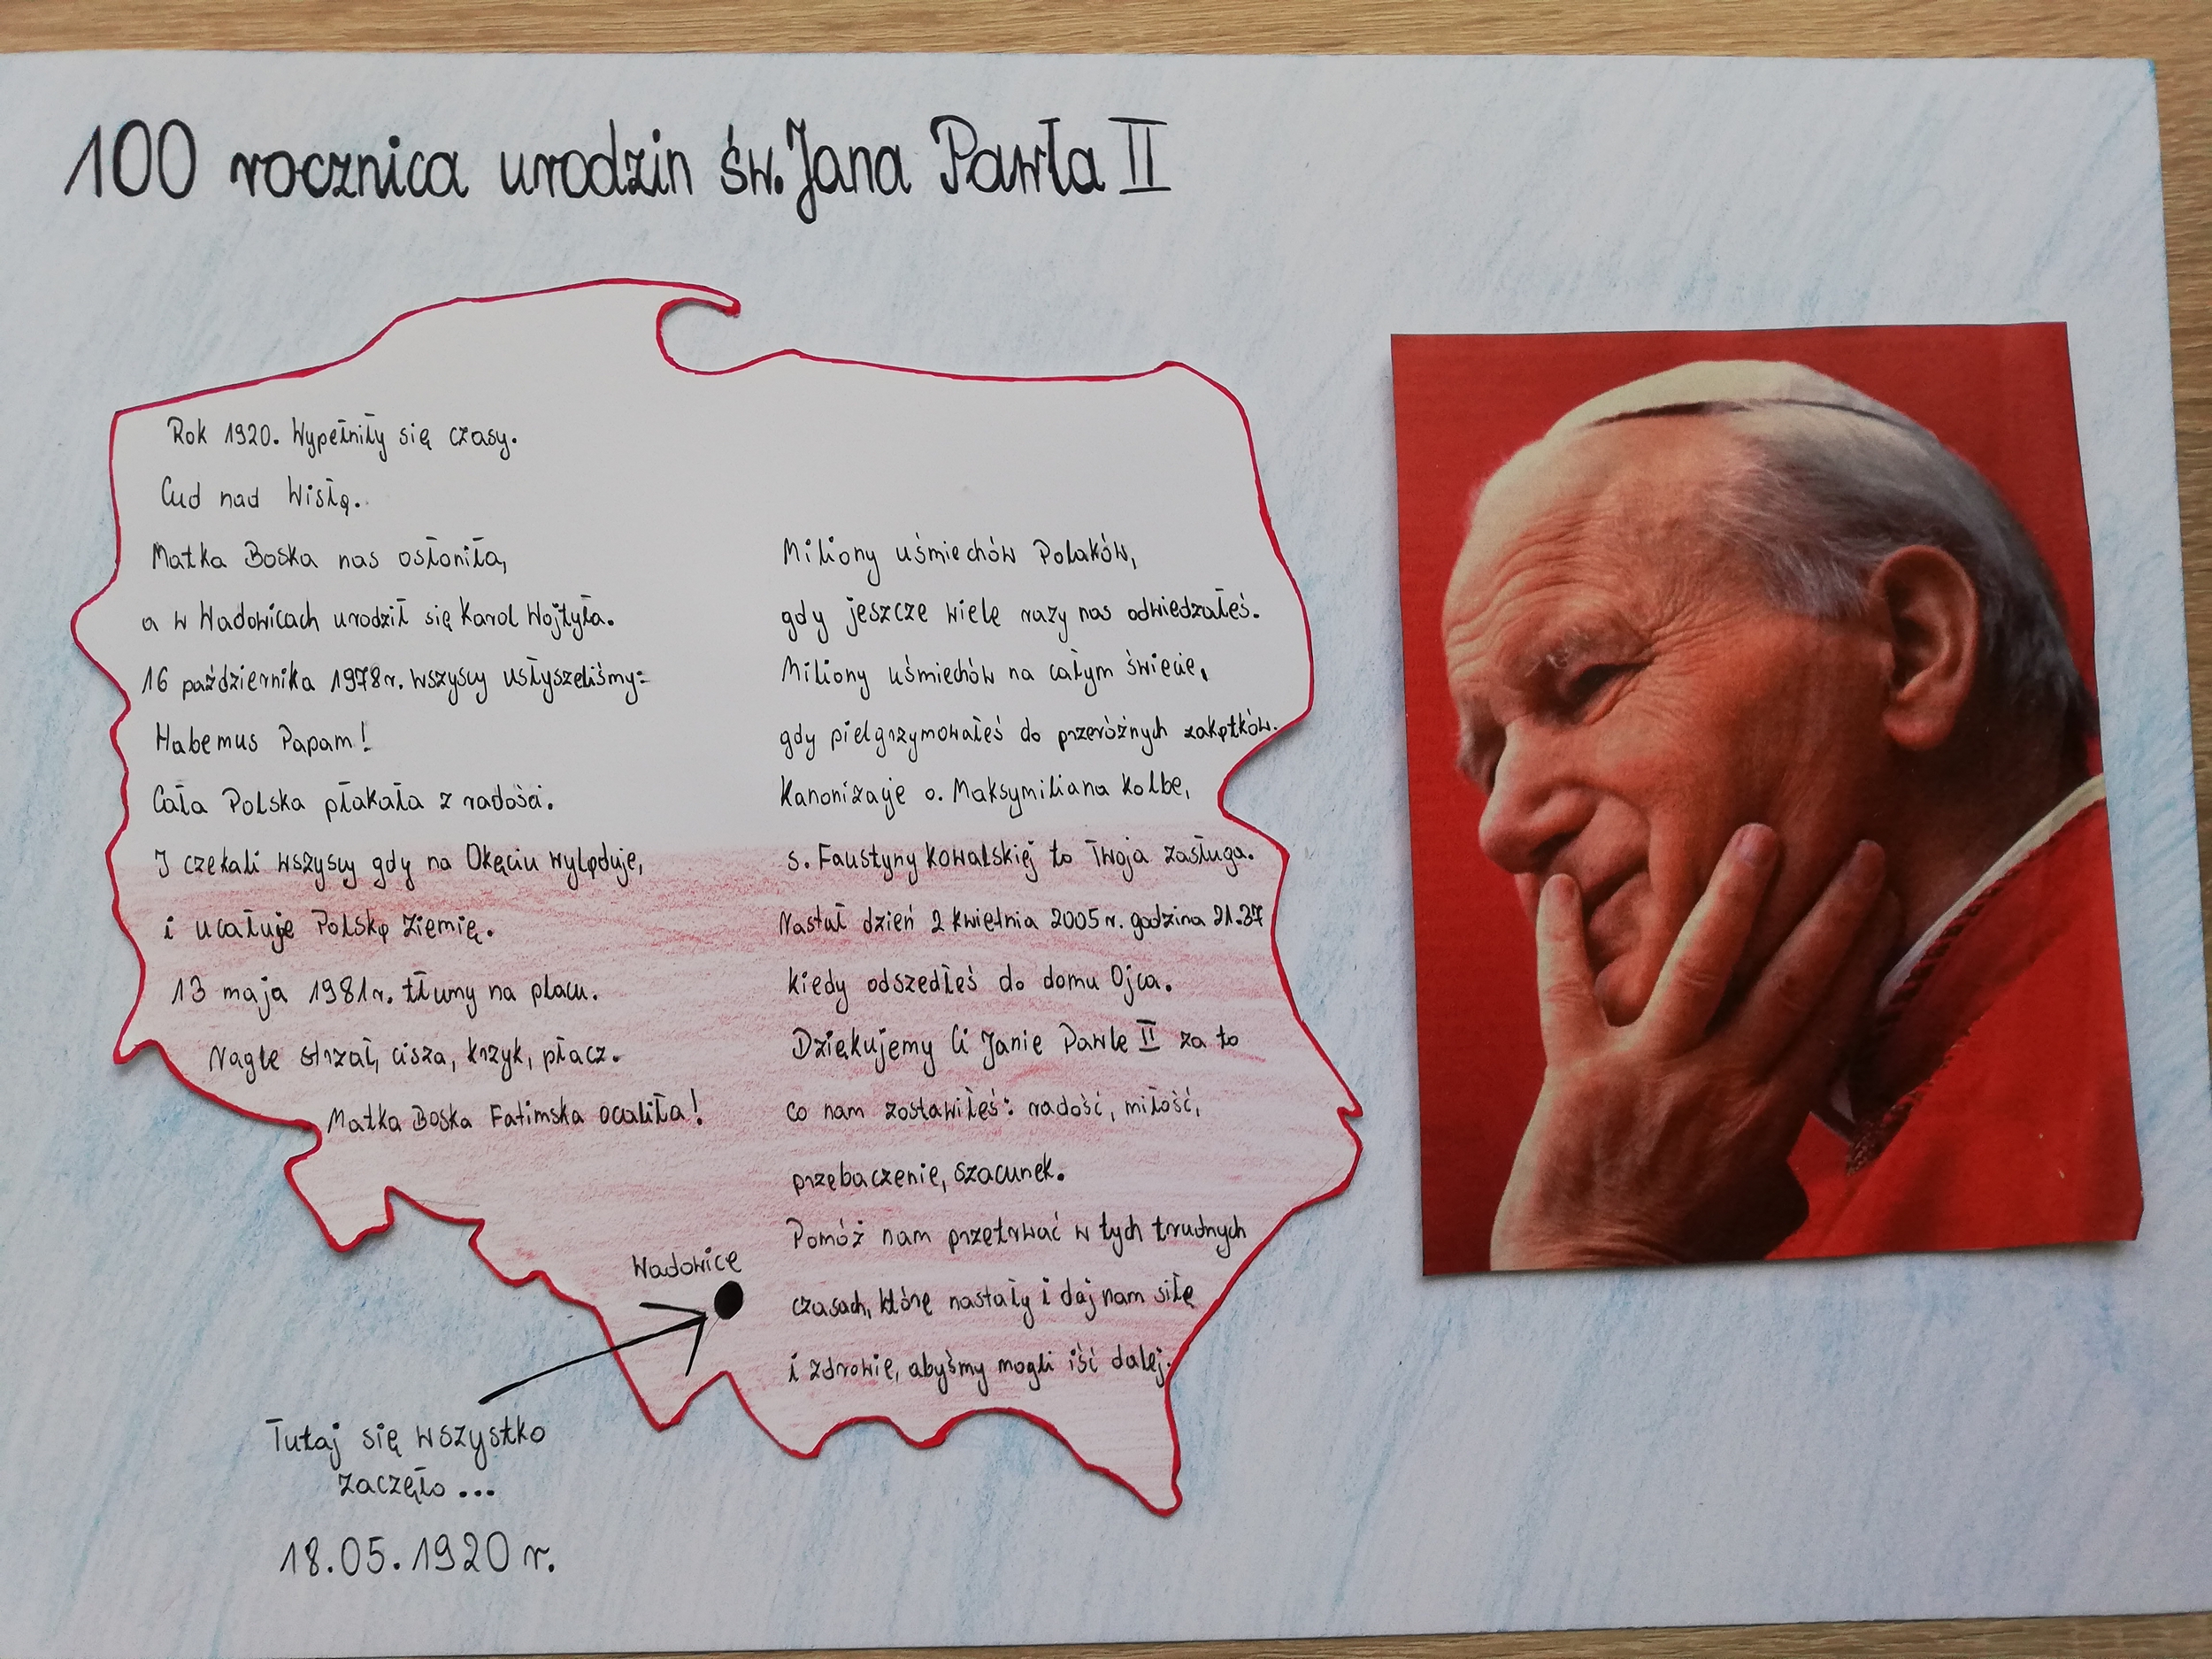 100 rocznica urodzin św. Jana Pawła II
Rok 1920. Wypełniły się czasy.
Cud nad Wisłą.
Matka Boska nas osłoniła,
a w Wadowicach urodził się Karol Wojtyła.
16 października 1978r. wszyscy usłyszeliśmy:
Habemus Papam!
Cała Polska płakała z radości.
I czekali wszyscy gdy na Okęciu wyląduje,
i ucałuje Polską Ziemię.
13 maja 1981r. tłumy na placu.
Nagle strzał, cisza, krzyk, płacz.
Matka Boska Fatimska ocaliła!
Miliony uśmiechów Polaków,
gdy jeszcze wiele razy nas odwiedzałeś.
Miliony uśmiechów na całym świecie,
gdy pielgrzymowałeś do przeróżnych zakątków.
Kanonizacje o. Maksymiliana Kolbe,
s. Faustyny Kowalskiej to Twoja zasługa.
Nastał dzień 2 kwietnia 2005r. godzina 21.37
kiedy odszedłeś do domu Ojca.
Dziękujemy Ci Janie Pawle II za to
co nam zostawiłeś: radość, miłość,
przebaczenie, szacunek.
Pomóż nam przetrwać w tych trudnych
czasach, które nastały i daj nam siłę
i zdrowie, abyśmy mogli iść dalej.
Wadowice
Tutaj się wszystko
zaczęło...
18.05.1920 r.